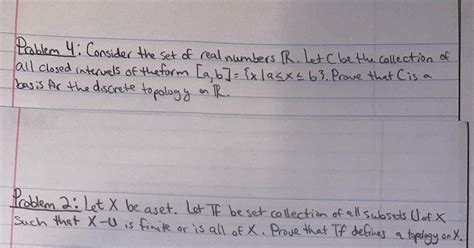 Problem 4: Consider the set of real numbers ℝ. Let C be the collection of
all closed intervals of the form [a,b] = {x | a ≤ x ≤ b}. Prove that C is a
basis for the discrete topology on ℝ.
Problem 2: Let X be a set. Let Tf be set collection of all subsets U of X
such that X-U is finite or is all of X. Prove that Tf defines a topology on X.